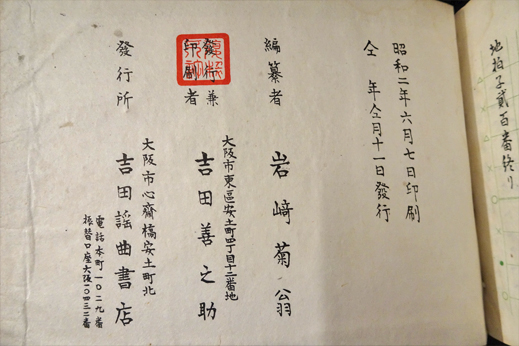 地拍子貳百番終り
昭和二年六月七日印刷
仝　年仝月十一日發行
編纂者　岩﨑菊翁
發行兼
印刷者
大阪市東區安土町四丁目十二番地
吉田善之助
發行所
大阪市心齋橋安土町北
吉田謡曲書店
電話本町一〇二九番
振替口座大阪一〇四三二番